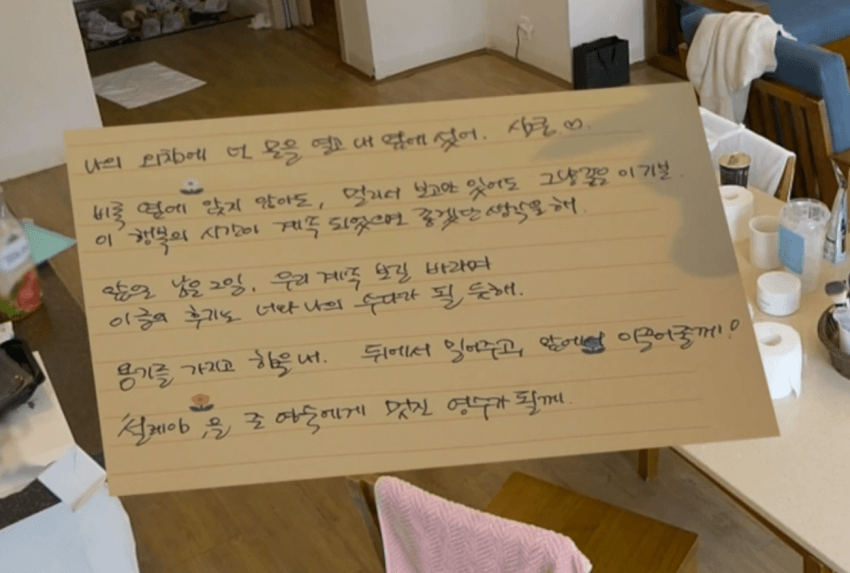 나의 외침에 넌 문을 열고 내 옆에 섰어. 심쿵♡.
비록 옆에 앉지 않아도, 멀리서 보고만 있어도 그냥 좋은 이 기분.
이 행복의 시간이 계속 되었으면 좋겠단 생각을 해.
앞으로 남은 2일, 우리 계속 보길 바라며
이 글의 후기는 너와 나의 수다가 될 듯해.
용기를 가지고 힘을 내. 뒤에서 밀어주고, 앞에서 이끌어줄께!
설레야 을 준 영숙에게 멋진 영수가 될께.